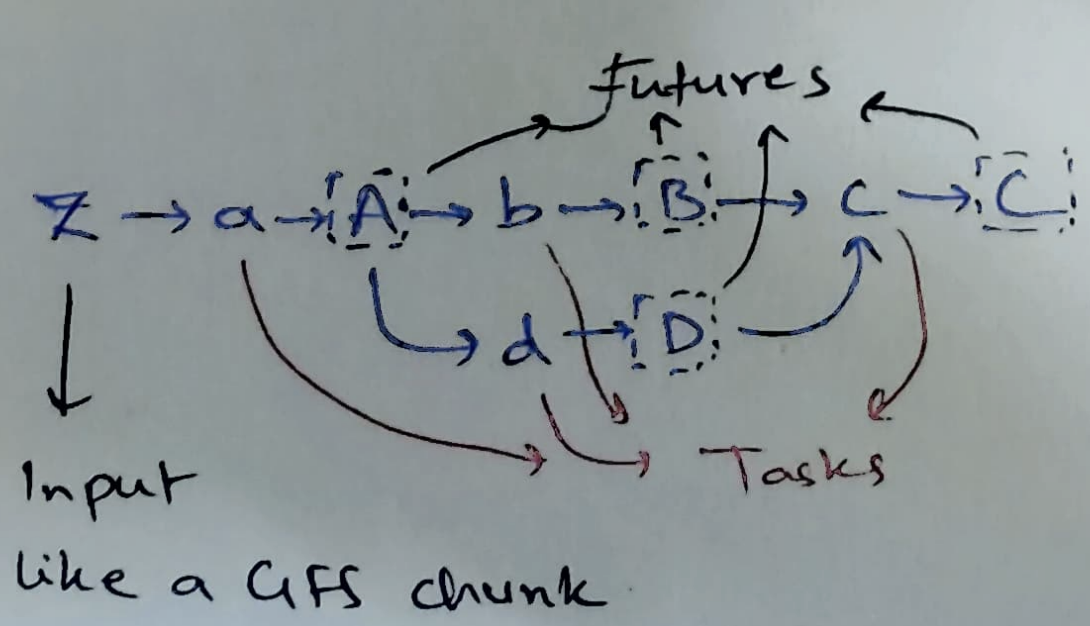 Futures
Z → a → A → b → B → c → C
d → D
Tasks
Input
like a GFS chunk